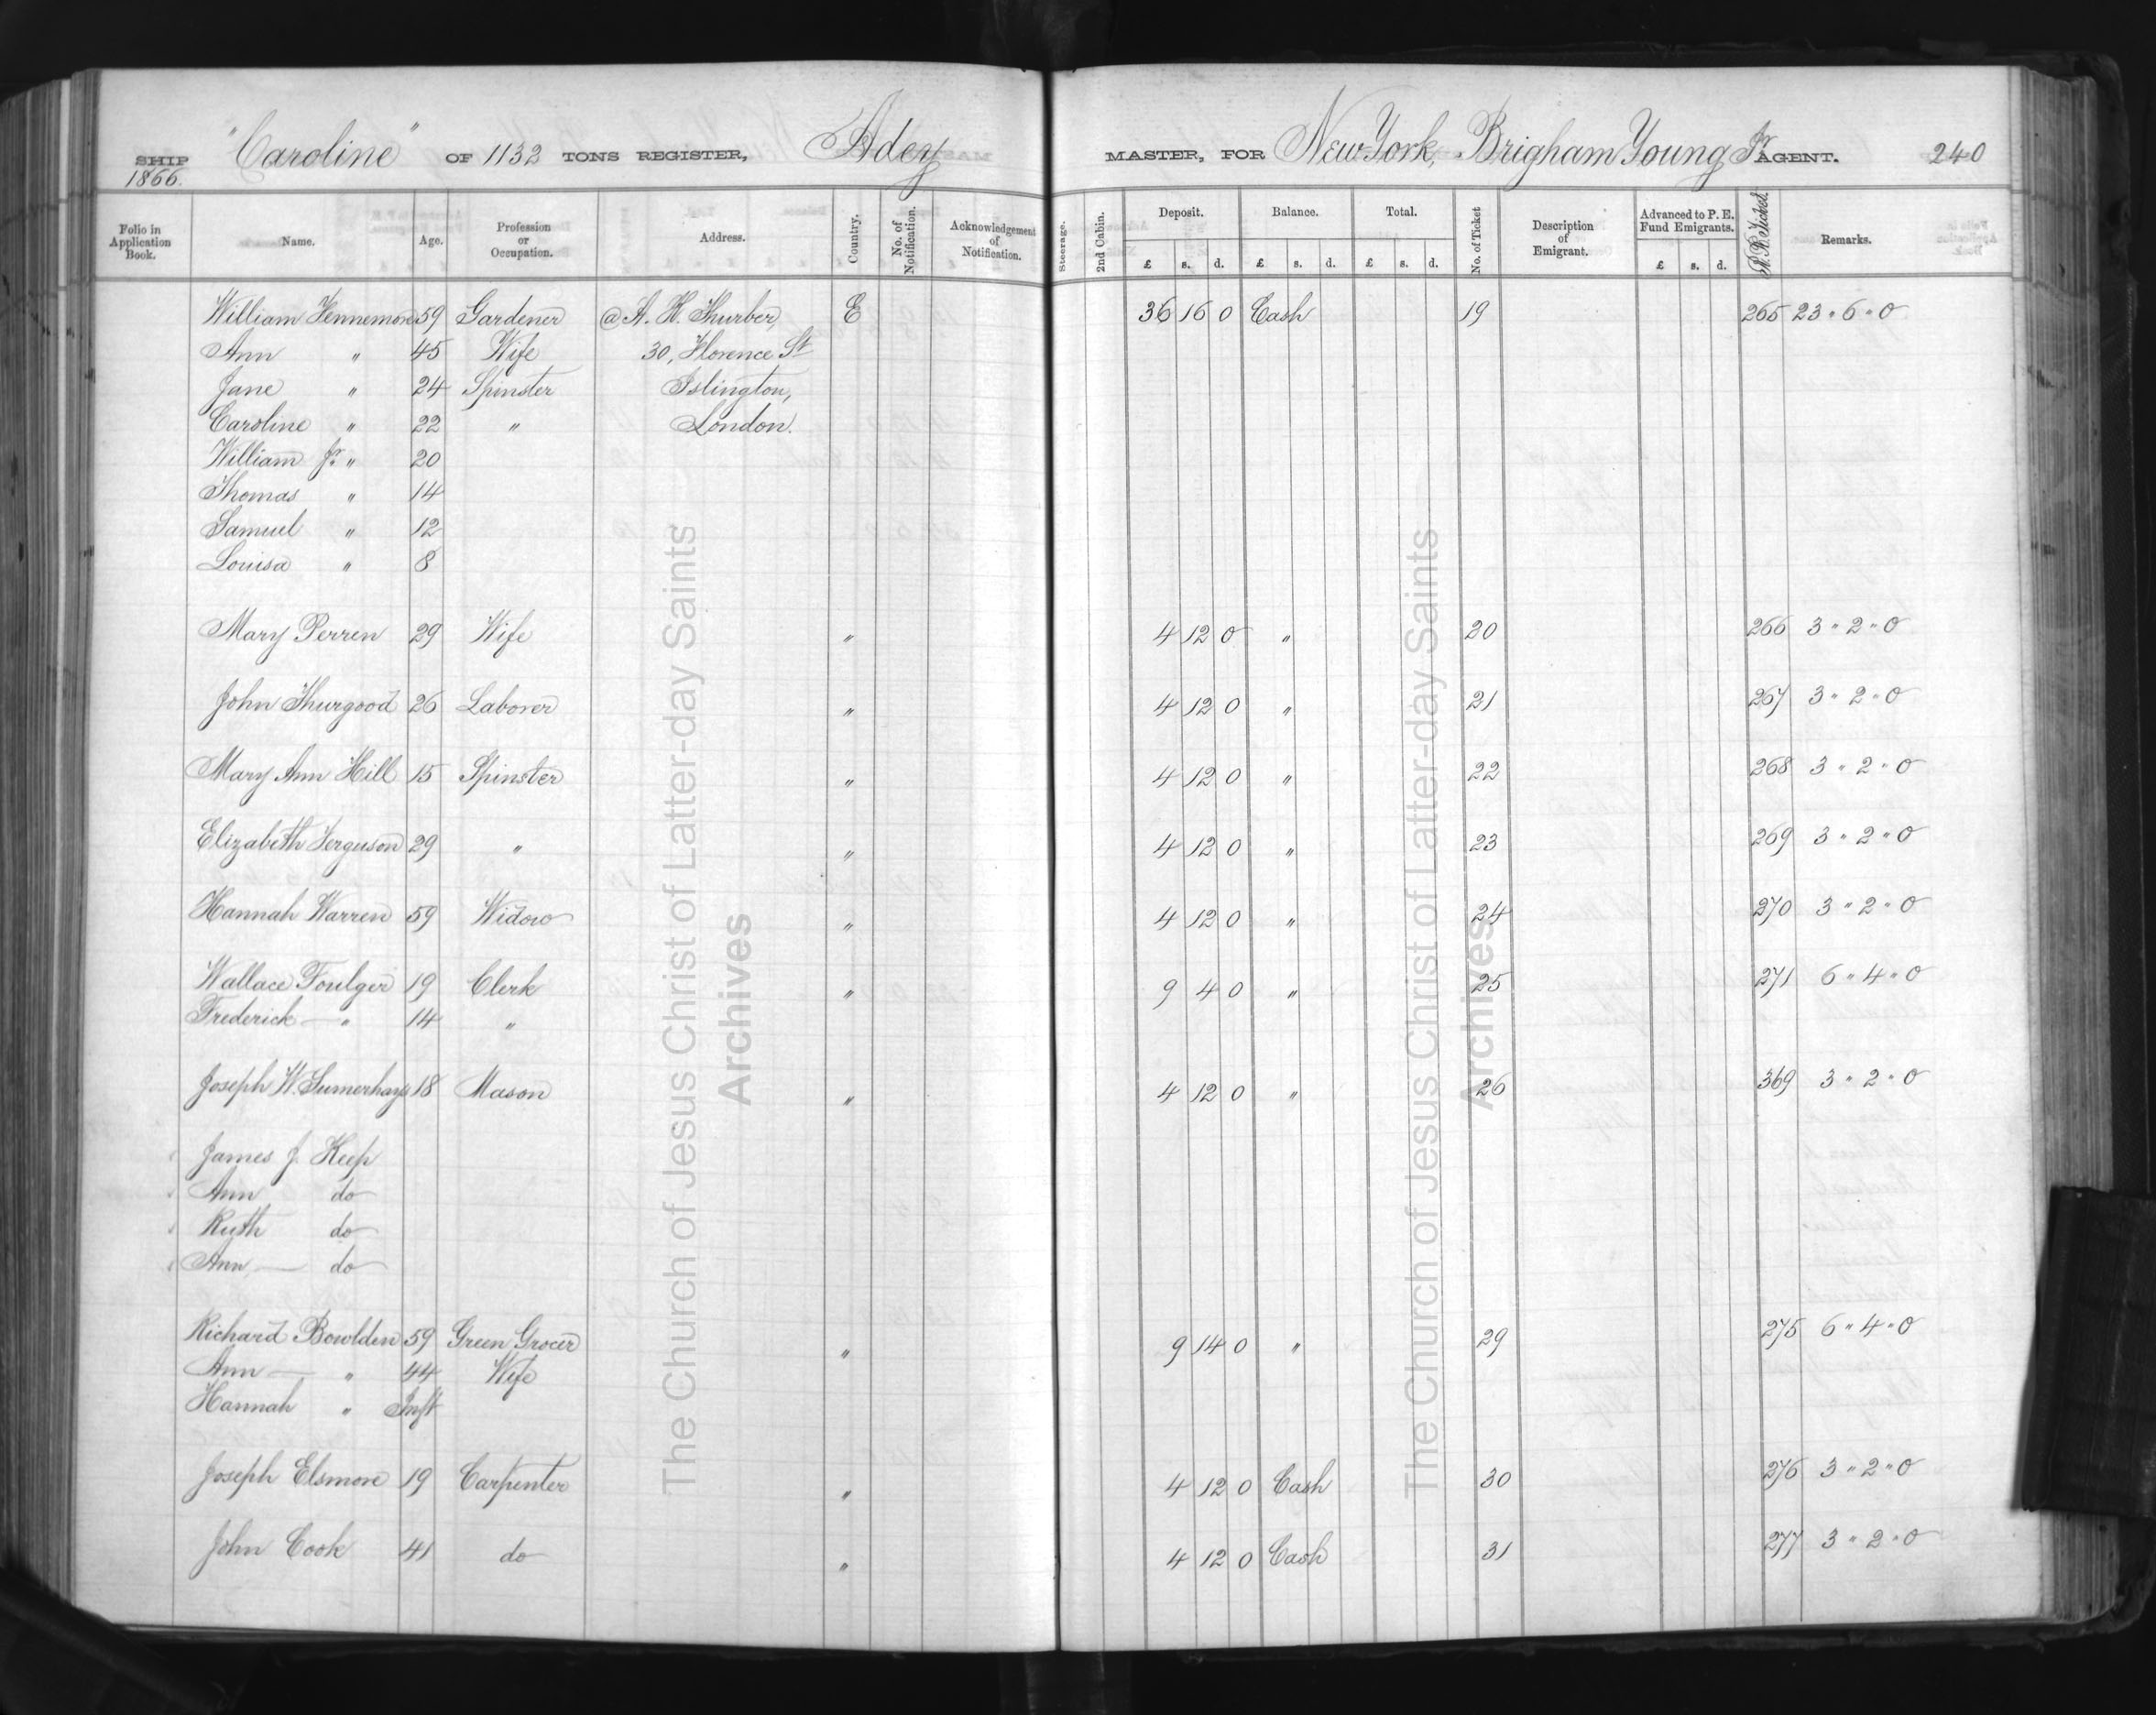 SHIP "Caroline" OF 1132 TONS REGISTER, Adey MASTER, FOR New York, Brigham Young Jr. AGENT. 240
1866.
Folio in Application Book. Name. Age. Profession or Occupation. Address. Country. No. of Notification. Acknowledgement of Notification. Steerage. 2nd Cabin. Deposit. £ s. d. Balance. £ s. d. Total. £ s. d. No. of Ticket Description of Emigrant. Advanced to P. E. Fund Emigrants. £ s. d. R.R. Ticket. Remarks.
William Hennemore 59 Gardener @ A. H. Thurber, E 36 16 0 Cash 19 265 23 " 6 " 0
Ann " 45 Wife 30, Florence St
Jane " 24 Spinster Islington,
Caroline " 22 " London.
William Jr. " 20
Thomas " 14
Samuel " 12
Louisa " 8
Mary Perren 29 Wife " 4 12 0 " 20 266 3 " 2 " 0
John Thurgood 26 Laborer " 4 12 0 " 21 267 3 " 2 " 0
Mary Ann Hill 15 Spinster " 4 12 0 " 22 268 3 " 2 " 0
Elizabeth Ferguson 29 " " 4 12 0 " 23 269 3 " 2 " 0
Hannah Warren 59 Widow " 4 12 0 " 24 270 3 " 2 " 0
Wallace Foulger 19 Clerk " 9 4 0 " 25 271 6 " 4 " 0
Frederick — " 14 "
Joseph W. Sumerhays 18 Mason " 4 12 0 " 26 369 3 " 2 " 0
James J. Keep
Ann do
Ruth do
Ann — do
Richard Bowlden 59 Green Grocer " 9 14 0 " 29 275 6 " 4 " 0
Ann — " 44 Wife
Hannah " Inft
Joseph Elsmore 19 Carpenter " 4 12 0 Cash 30 276 3 " 2 " 0
John Cook 41 do " 4 12 0 Cash 31 277 3 " 2 " 0
The Church of Jesus Christ of Latter-day Saints
Archives
The Church of Jesus Christ of Latter-day Saints
Archives